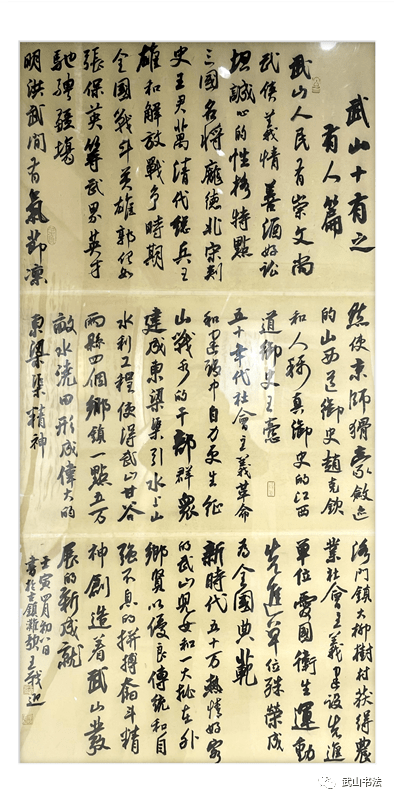 武山十有之
有人篇
武山人民有崇文尚
武侯義情善酒好訟
坦誠心的性格特點
三國名將龐德北宋刺
史王君萬清代總兵王
雄和解放戰爭時期
全國戰斗英雄郭化如
張保英等武界英才
馳騁疆場
明洪武間有氣節凛
然使京師猾豪斂迹
的山西道御史趙克欽
和人稱真御史的江西
道御史王憲
五十年代社會主義革命
和建設中自力更生征
山戰水的干部群眾
建成東梁渠引水上山
水利工程使得武山甘谷
兩縣四個鄉鎮一點五万
畝水澆田形成偉大的
東梁渠精神
洛門鎮大柳樹村获得農
業社會主義建设先進
單位愛國衛生運動
先進單位殊榮成
為全國典範
新時代五十万熱情好客
的武山兒女和一大批在外
鄉賢以優良傳統和自
強不息的拼搏奮斗精
神創造着武山發
展的新成就
壬寅四月初八日
書於古鎮灘歌王
武山书法